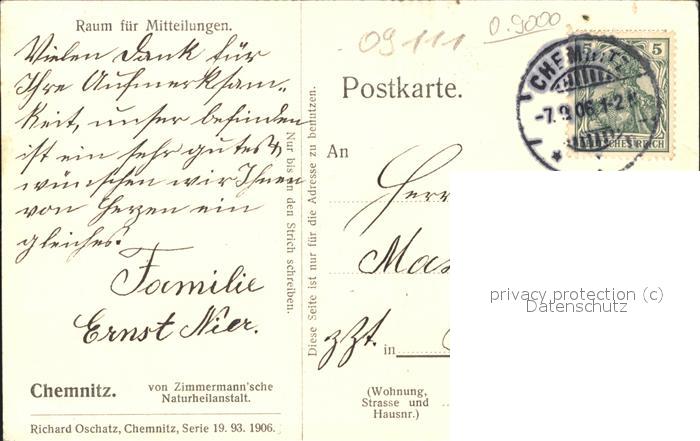 Raum für Mitteilungen.
Vielen Dank für
Ihre Aufmerksam-
keit, unser befinden
ist ein sehr gutes &
wünschen wir Ihnen
von Herzen ein
gleiches.
Familie
Ernst Nier.
Chemnitz.
von Zimmermann'sche
Naturheilanstalt.
Richard Oschatz, Chemnitz, Serie 19. 93. 1906.
Nur bis an den Strich schreiben.
Diese Seite ist nur für die Adresse zu benutzen.
09111
0.9000
Postkarte.
CHEMNITZ
-7.9.06.1-2
5
5
DEUTSCHES REICH
An
Herr
Mas
zZt. in
(Wohnung,
Strasse und
Hausnr.)
privacy protection (c)
Datenschutz